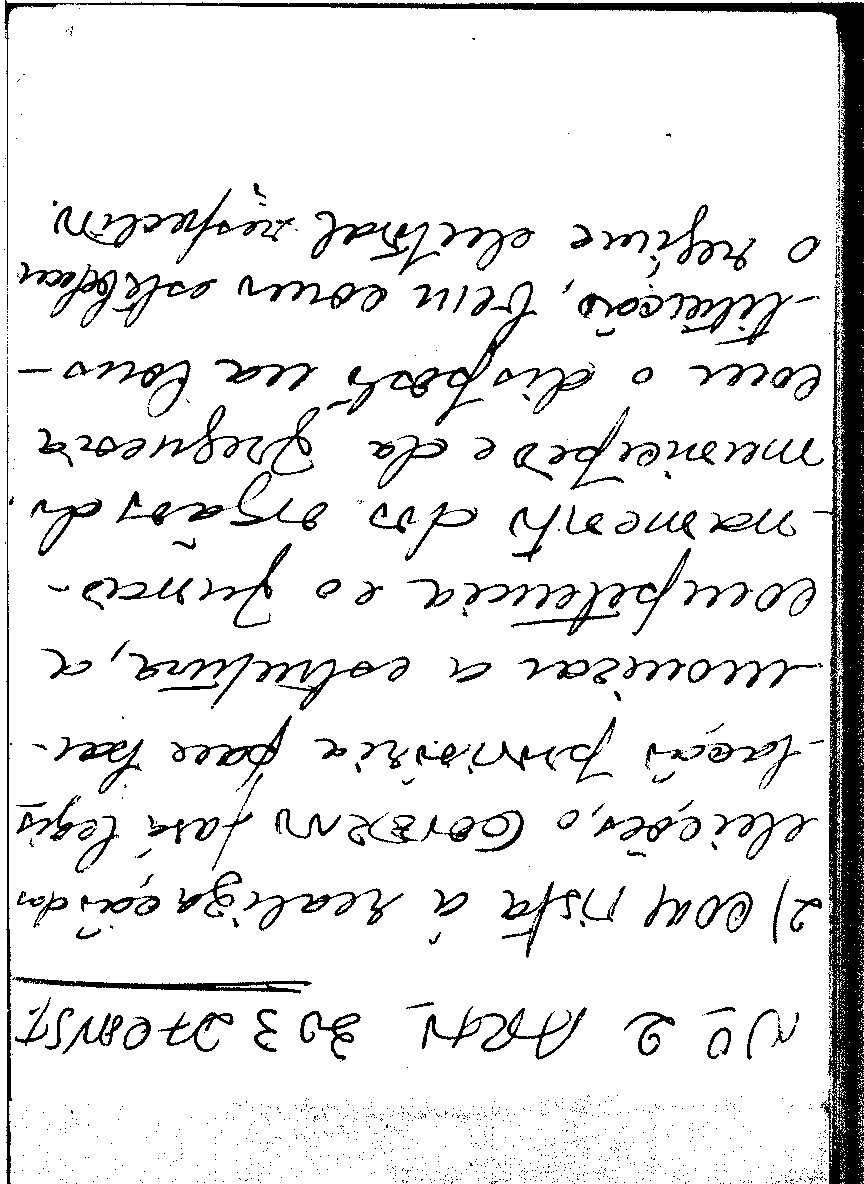 Nº 2 ART. 303 DA CONST.
2) Com vista à realização das
eleições, o Governo fará legis
-lação provisória para har-
-monizar a estrutura, a
competência e o funcio-
-namento dos órgãos do
município e da freguesia
com o disposto na Cons-
-tituição, bem como estabelecer
o regime eleitoral respectivo.